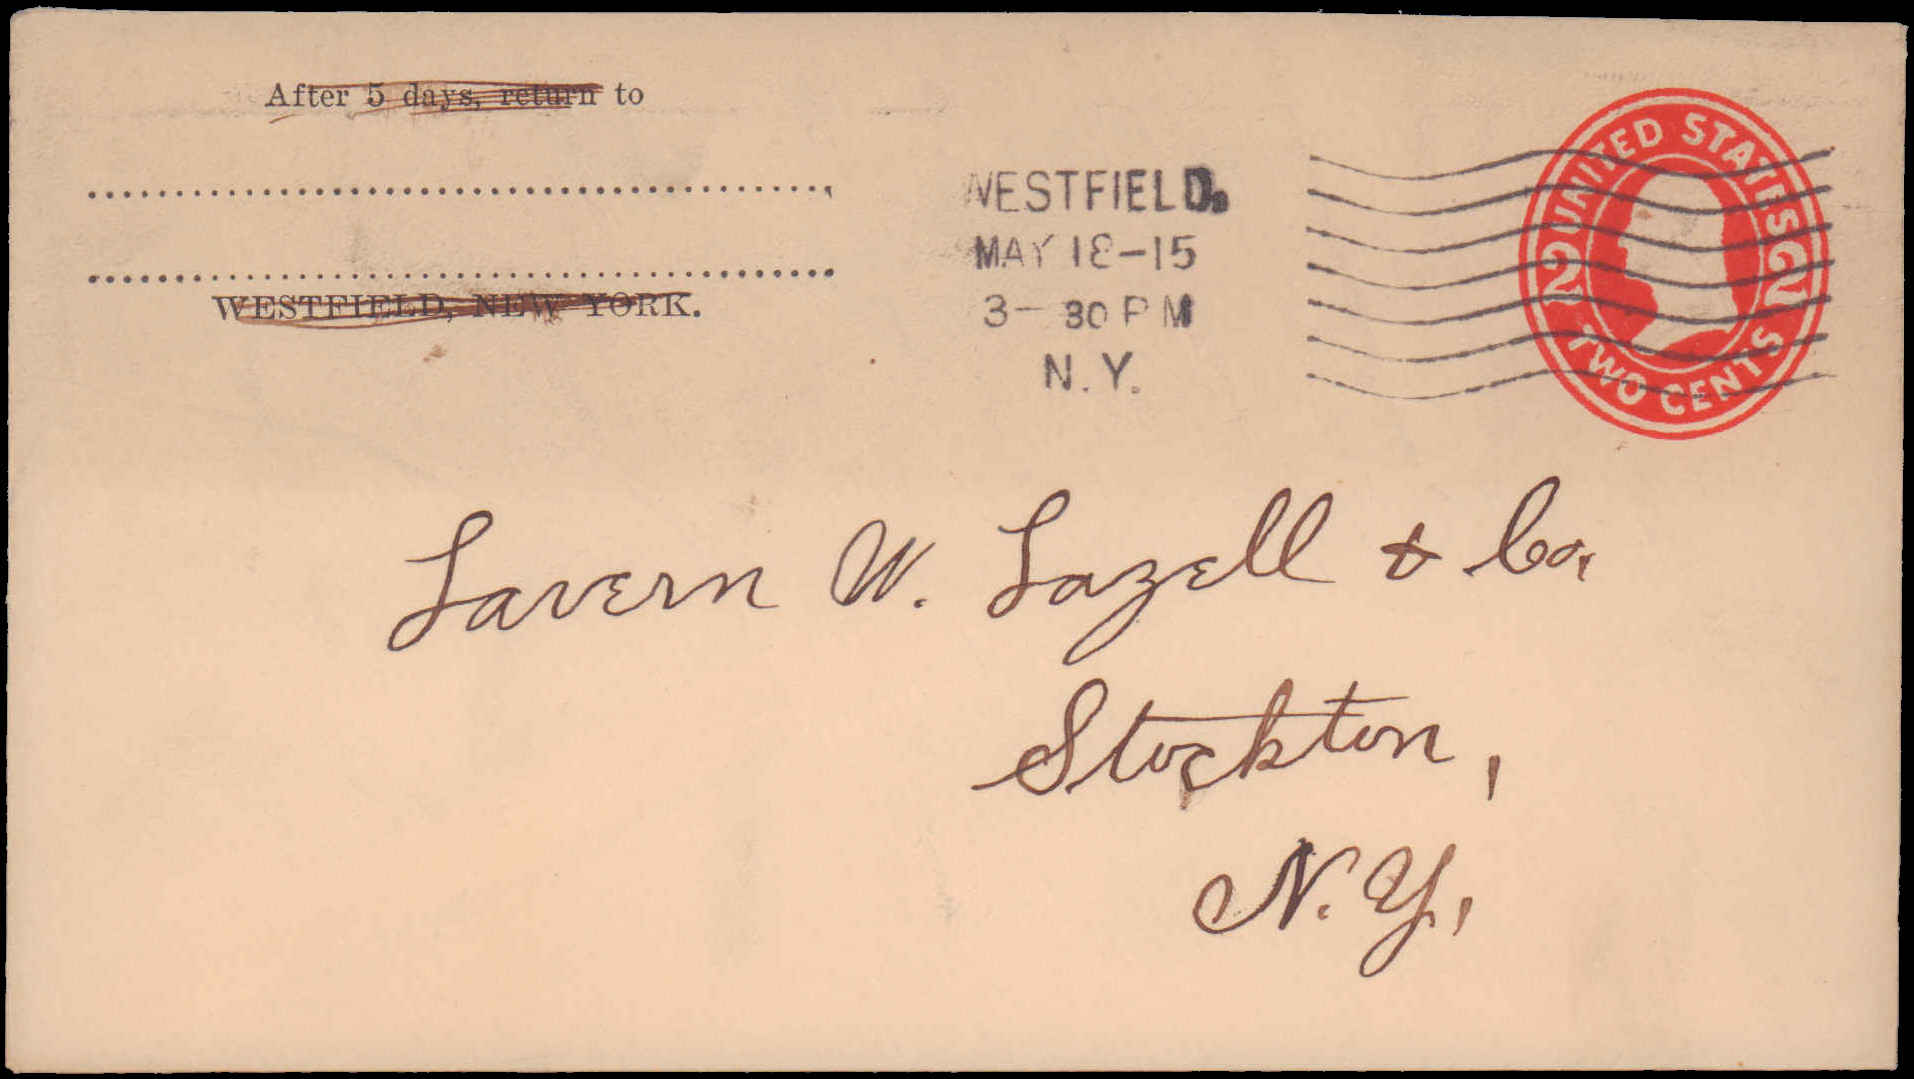 After 5 days, return to
WESTFIELD, NEW YORK.
WESTFIELD.
MAY 18-15
3-30 PM
N.Y.
UNITED STATES
2 2
TWO CENTS
Lavern W. Lazell & Co,
Stockton,
N.Y,